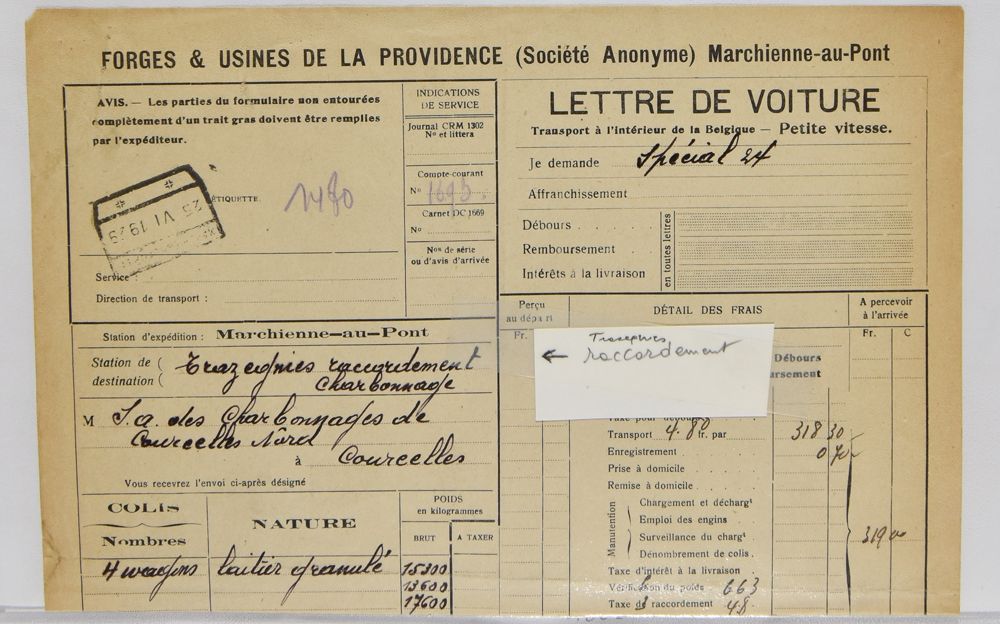 FORGES & USINES DE LA PROVIDENCE (Société Anonyme) Marchienne-au-Pont
AVIS. — Les parties du formulaire non entourées
complètement d'un trait gras doivent être remplies
par l'expéditeur.
ÉTIQUETTE.
1480
25 VI 1929
Service
Direction de transport :
INDICATIONS
DE SERVICE
Journal CRM 1302
Nº et littera
Compte-courant
Nº 1695.
Carnet DC 1669
Nº
Nos de série
ou d'avis d'arrivée
LETTRE DE VOITURE
Transport à l'intérieur de la Belgique — Petite vitesse.
Je demande Spécial 24
Affranchissement
Débours
Remboursement
Intérêts à la livraison
en toutes lettres
Station d'expédition : Marchienne-au-Pont
Station de
destination
Trazegnies raccordement
Charbonnage
M S.a. des Charbonnages de
Courcelles Nord
à Courcelles
Vous recevrez l'envoi ci-après désigné
COLIS
Nombres
NATURE
POIDS
en kilogrammes
BRUT
A TAXER
4 wagons laitier granulé 15300
13600
17600
Perçu
au départ
DÉTAIL DES FRAIS
A percevoir
à l'arrivée
Fr.
Fr. C
← raccordement
Débours
Transport 4.80 fr. par 318 30
Enregistrement 0 70
Prise à domicile
Remise à domicile
Manutention
Chargement et déchargt
Emploi des engins
Surveillance du chargt
Dénombrement de colis.
319 00
Taxe d'intérêt à la livraison
Vérification du poids 663
Taxe de raccordement 48